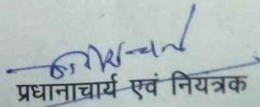 प्रधानाचार्य एवं नियत्रक